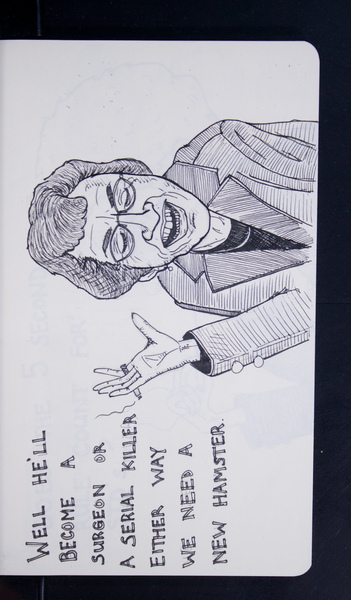 WELL HE'LL
BECOME A
SURGEON OR
A SERIAL KILLER
EITHER WAY
WE NEED A
NEW HAMSTER.